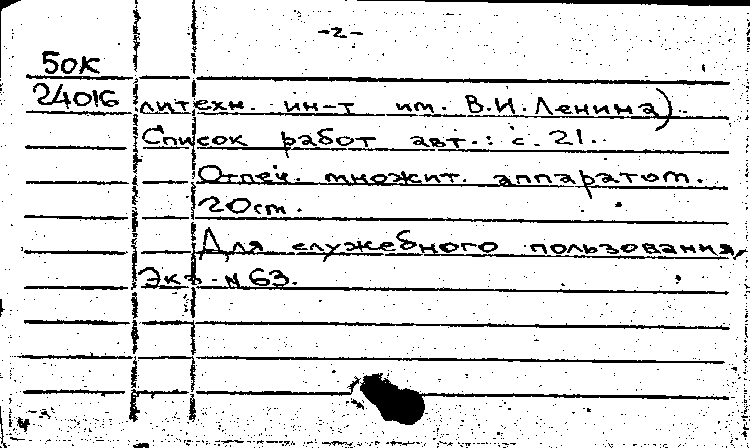 -2-
50К
24016 литехн. ин-т им. В.И. Ленина).
Список работ авт.: с. 21.
Отпеч. множит. аппаратом.
20 cm.
Для служебного пользования,
Экз. N 63.